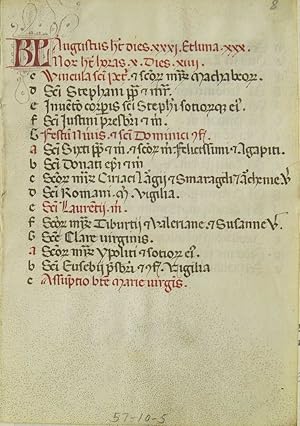 8
KL Augustus ht dies. xxxi. Et luna. xxx.
Nox ht horas. x. Dies. xiiii.
c Vincula sci petri. & scor mr̃ Machabeor.
d Sci Stephani pp & m̃.
e Invẽtio corpis sci Stephi sotiorq ei.
f Sci Justini presbri & m.
g Festũ Nivis & sci Dominici ɔf.
a Sci Sixti pp & m. & scor m. Felicissimi & Agapiti.
b Sci Donati epi & m
c Scor mr̃ Ciriaci Largii & Smaragdi
d Sci Romani. Vigilia.
e Sci Laurẽtii. m.
f Scor mr̃ Tiburtii & Valeriane & Susanne v.
g Sce Clare virginis.
a Scor mr̃ Ypoliti & sotior ei.
b Sci Eusebii p̃sbri & ɔf. Vigilia
c Assũptio bte Marie virgis.
57-10-5